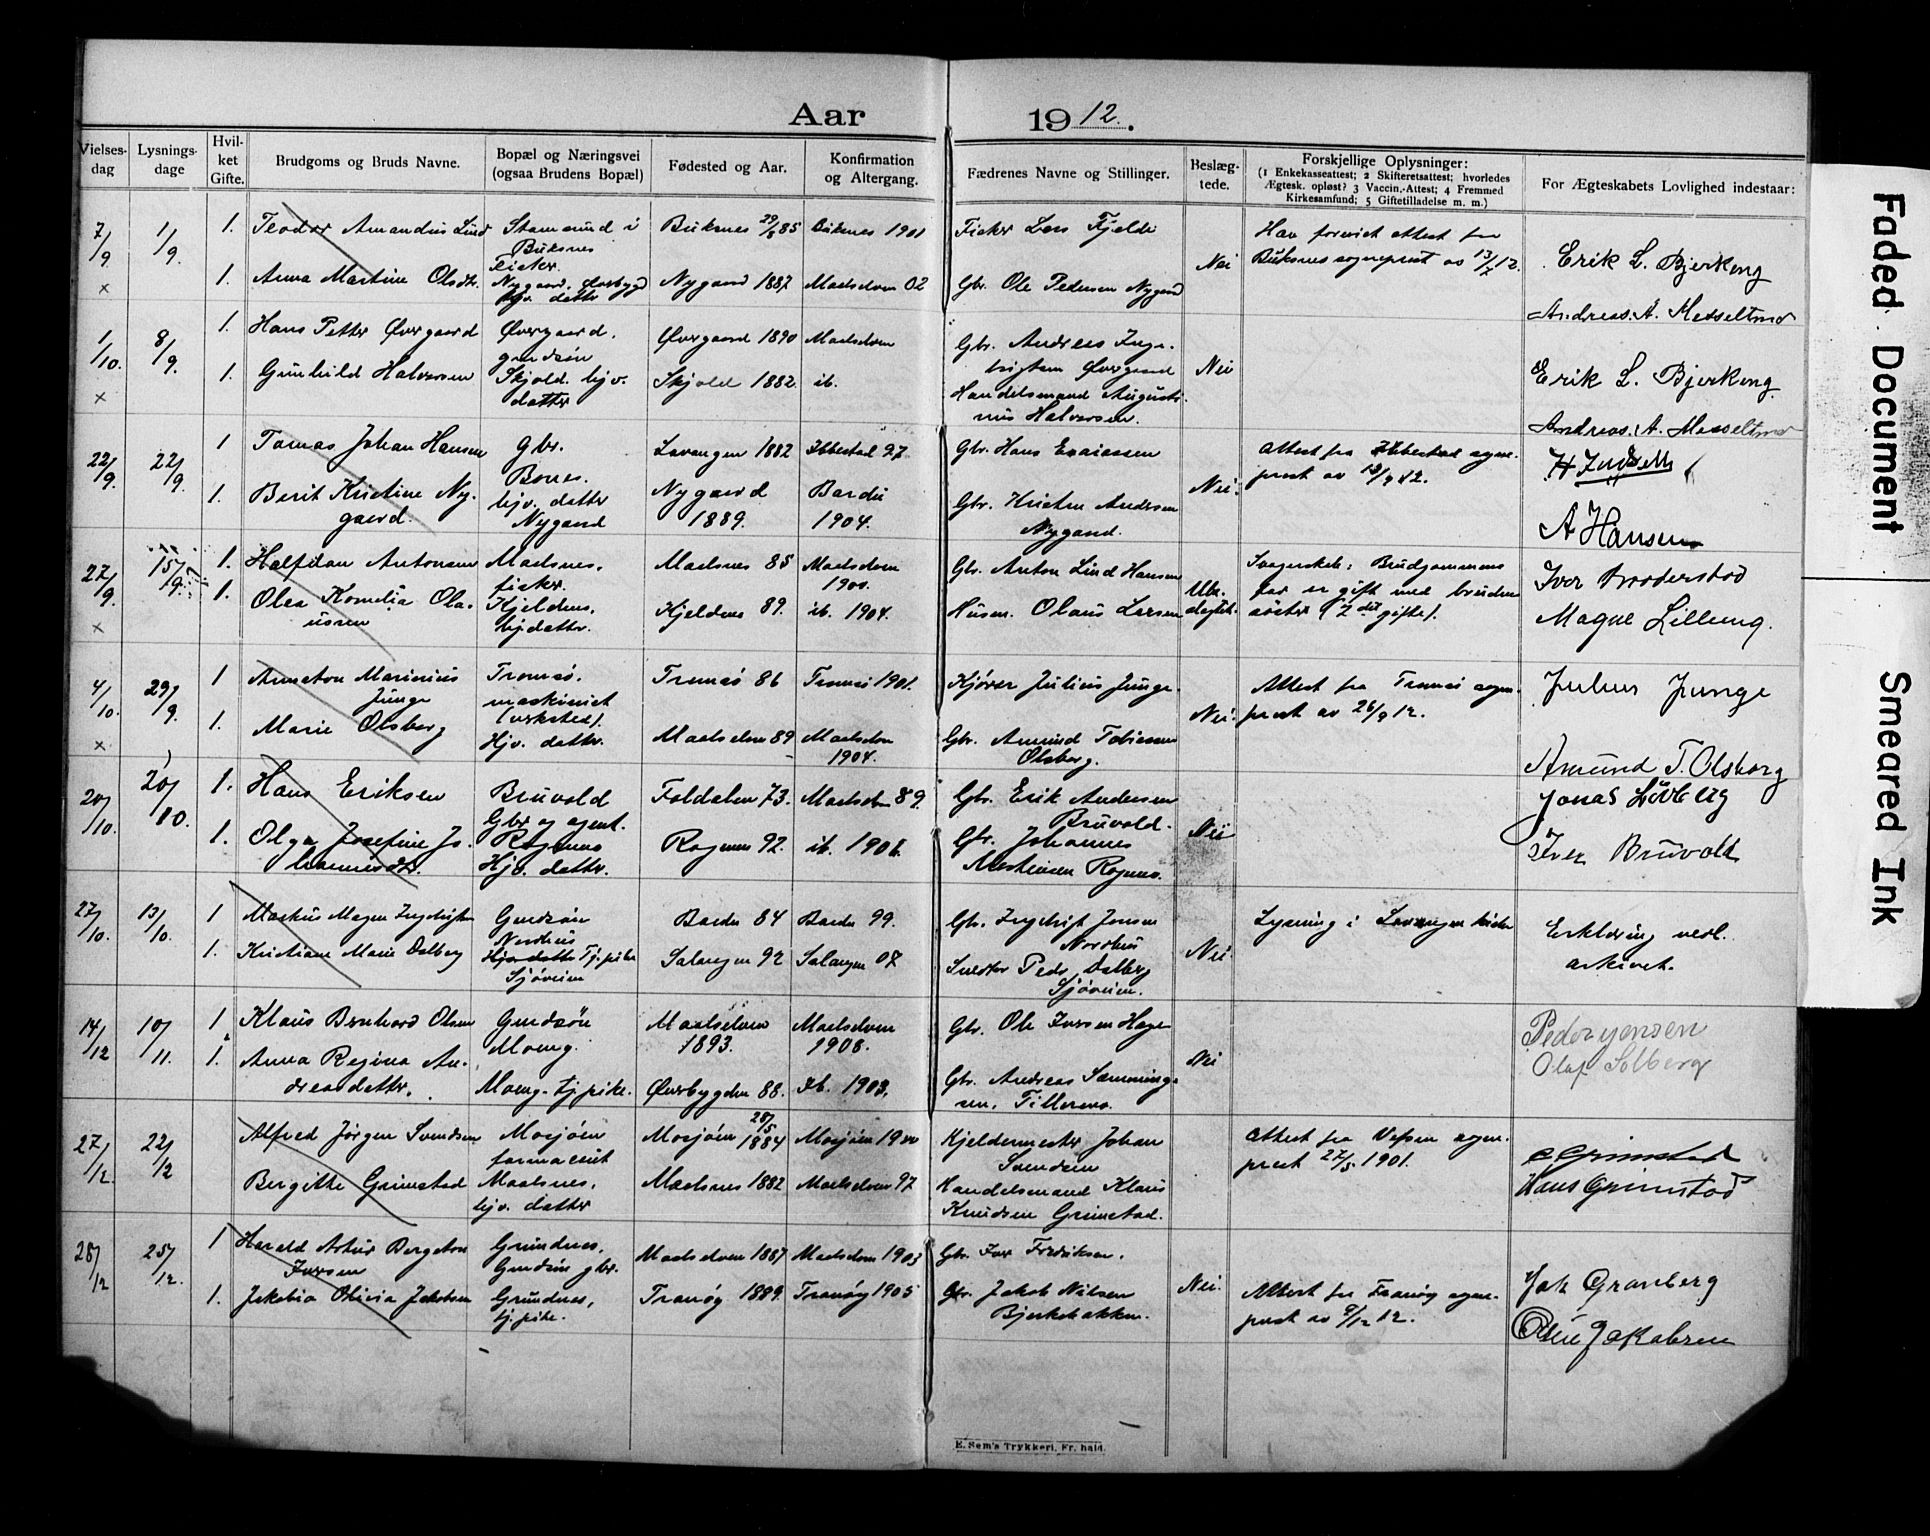 Aar 1912.
Vielses-dag
Lysnings-dage
Hvil-ket Gifte.
Brudgoms og Bruds Navne.
Bopæl og Næringsvei
(ogsaa Brudens Bopæl)
Fødested og Aar.
Konfirmation
og Altergang.
Fædrenes Navne og Stillinger.
Beslæg-tede.
Forskjellige Oplysninger:
(1 Enkekasseattest; 2 Skifteretsattest; hvorledes
Ægtesk. opløst? 3 Vaccin.-Attest; 4 Fremmed
Kirkesamfund; 5 Giftetilladelse m. m.)
For Ægteskabets Lovlighed indestaar:
7/9 1/9. 1. Teodor Amandus Lind
Stamsund i
Buksnes
Fisker.
Buksnes 29/6 85 Buksnes 1901
Fisker Lars Fjelde
Nei
Buksnes sogneprest av 13/7 12.
Erik L. Bjerkeng
x 1. Anna Martine Olsdtr.
Nygaard
hjv. datter
Nygaard 1887 Maalselven 02
Gbr. Ole Pedersen Nygaard
Andreas. A. Messeltmo
1/10. 8/9. 1. Hans Petter Øvergaard
Øvergaard.
gaardsøn
Øvergaard 1890 Maalselven
Gbr. Andreas Inge-
brigtsen Øvergaard
Nei
Erik L. Bjerkeng
x 1. Gunhild Halvorsen
Skjold. hjv.
datter
Skjold 1882. ib.
Handelsmand Augusti-
nus Halvorsen.
Andreas. A. Messeltmo
22/9. 22/9. 1 Tomas Johan Hansen
gbr.
Bones.
Lavangen 1882 Ibbestad 97.
Gbr. Hans Esaiassen
Nei.
Attest fra Ibbestad sogne-
prest av 12/9 12.
1. Berit Kristine Ny-
gaard.
hjv. datter
Nygaard
Nygaard
1889.
Bardu
1904.
Gbr. Kristen Andersen
Nygaard.
A Hansen
27/9 15/9. 1. Halfdan Antonsen
Maalsnes.
fisker.
Maalsnes 85 Maalselven
1900.
Gbr. Anton Lind Hansen
Svogerskab: Brudgommens
far er gift med brudens
søster (2det gifte).
x 1. Olea Kornelia Ola-
ussen
Kjeldens.
hjv datter.
Kjeldens 89. ib. 1904.
Husm. Olaus Larsen
Magne Lilleeng.
4/10. 29/9. 1 Annaton Marinius
Junge
Tromsø.
maskinist
(verksted).
Tromsø 86 Tromsø 1901.
Kjører Julius Junge.
Nei.
Attest fra Tromsø sogne-
prest av 26/9 12.
Julius Junge
x 1. Marie Olsborg
Hjv. datter.
Maalselven 89 Maalselven
1904.
Gbr. Amund Tobiassen
Olsborg.
Amund T. Olsborg
20/10. 20/10. 1. Hans Eriksen
Bruvold
Gbr og agent.
Foldalen 73. Maalselven 89.
Gbr. Erik Andersen
Bruvold.
Nei
Jonas Løvberg
1. Olga Josefine Jo-
hannesdtr.
Rognmo
Hjv. datter.
Rognmo 92. ib. 1906.
Gbr. Johannes
Rognmo.
Iver Bruvold
27/10. 13/10. 1 Markus Magnus Ingebrigtsen
Gaardsøn
Nordhus
Bardu 84 Bardu 99.
Gbr. Ingebrigt Jonsen
Nordhus
Nei.
Lysning i Lavangen kirke
Erklæring vedl.
arkivet.
1. Kristiane Marie Dalberg
Hjv datter Tj. pike
Sjøveien
Salangen 92 Salangen 07
Peder Dalberg
Sjøveien.
14/12 10/11. 1 Klaus Bernhard Olsen
Gaardsøn
Moeng.
Maalselven
1893.
Maalselven
1908.
Gbr. Ole Iversen Hage
Nei
Peder Jensen
Olaf Solberg
1. Anna Regina An-
dreasdatter.
Moeng. tj. pike.
Øverbygden 88. Ib. 1903.
Gbr. Andreas Sammuelsen.
27/12. 22/12 Alfred Jørgen Svendsen
Mosjøen
farmaceut
Mosjøen 28/5 1884 Mosjøen 1900
Kjeldermester Johan
Svendsen
Attest fra Vefsen sogne-
prest 27/5. 1901.
Grimstad
Birgitte Grimstad
Maalsnes.
hjv. datter
Maalsnes 1882 Maalselven 97
Handelsmand Klaus
Knudsen Grimstad.
Hans Grimstad
28/12 25/12. 1 Harald Artur Bergeton
Iversen
Grundnes.
Gaardsøn gbr.
Maalselven 1887 Maalselven 1903
Gbr. Iver Fredriksen.
Nei.
Joh Granberg
1. Jakobia Olivia Jakobsen
Grundnes,
tj. pike.
Tranøy 1889. Tranøy 1905
Gbr. Jakob Nilsen
Bjerkebakken.
Attest fra Tranøy sogne-
prest av 9/12 12.
Jakobsen
E. Sem's Trykkeri, Fr. hald.
Faded Document
Smeared Ink